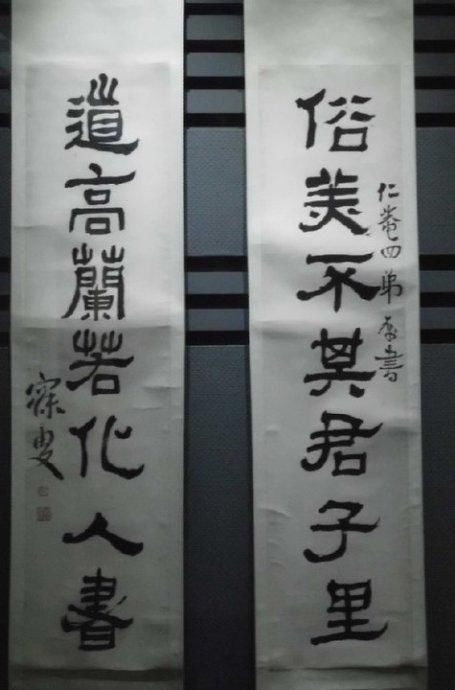 仁菴四弟属書
俗美不其君子里
道高蘭若化人書
寐叟